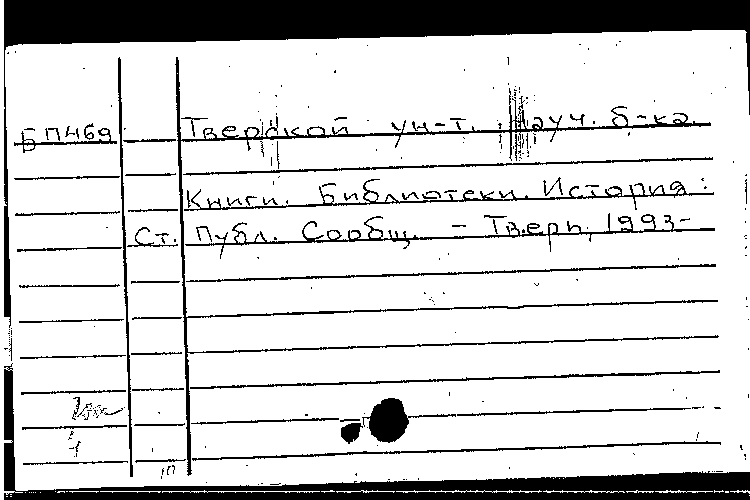 БП469 Тверской ун-т. Науч. б-ка.
Книги. Библиотеки. История:
Ст. Публ. Сообщ. - Тверь, 1993-